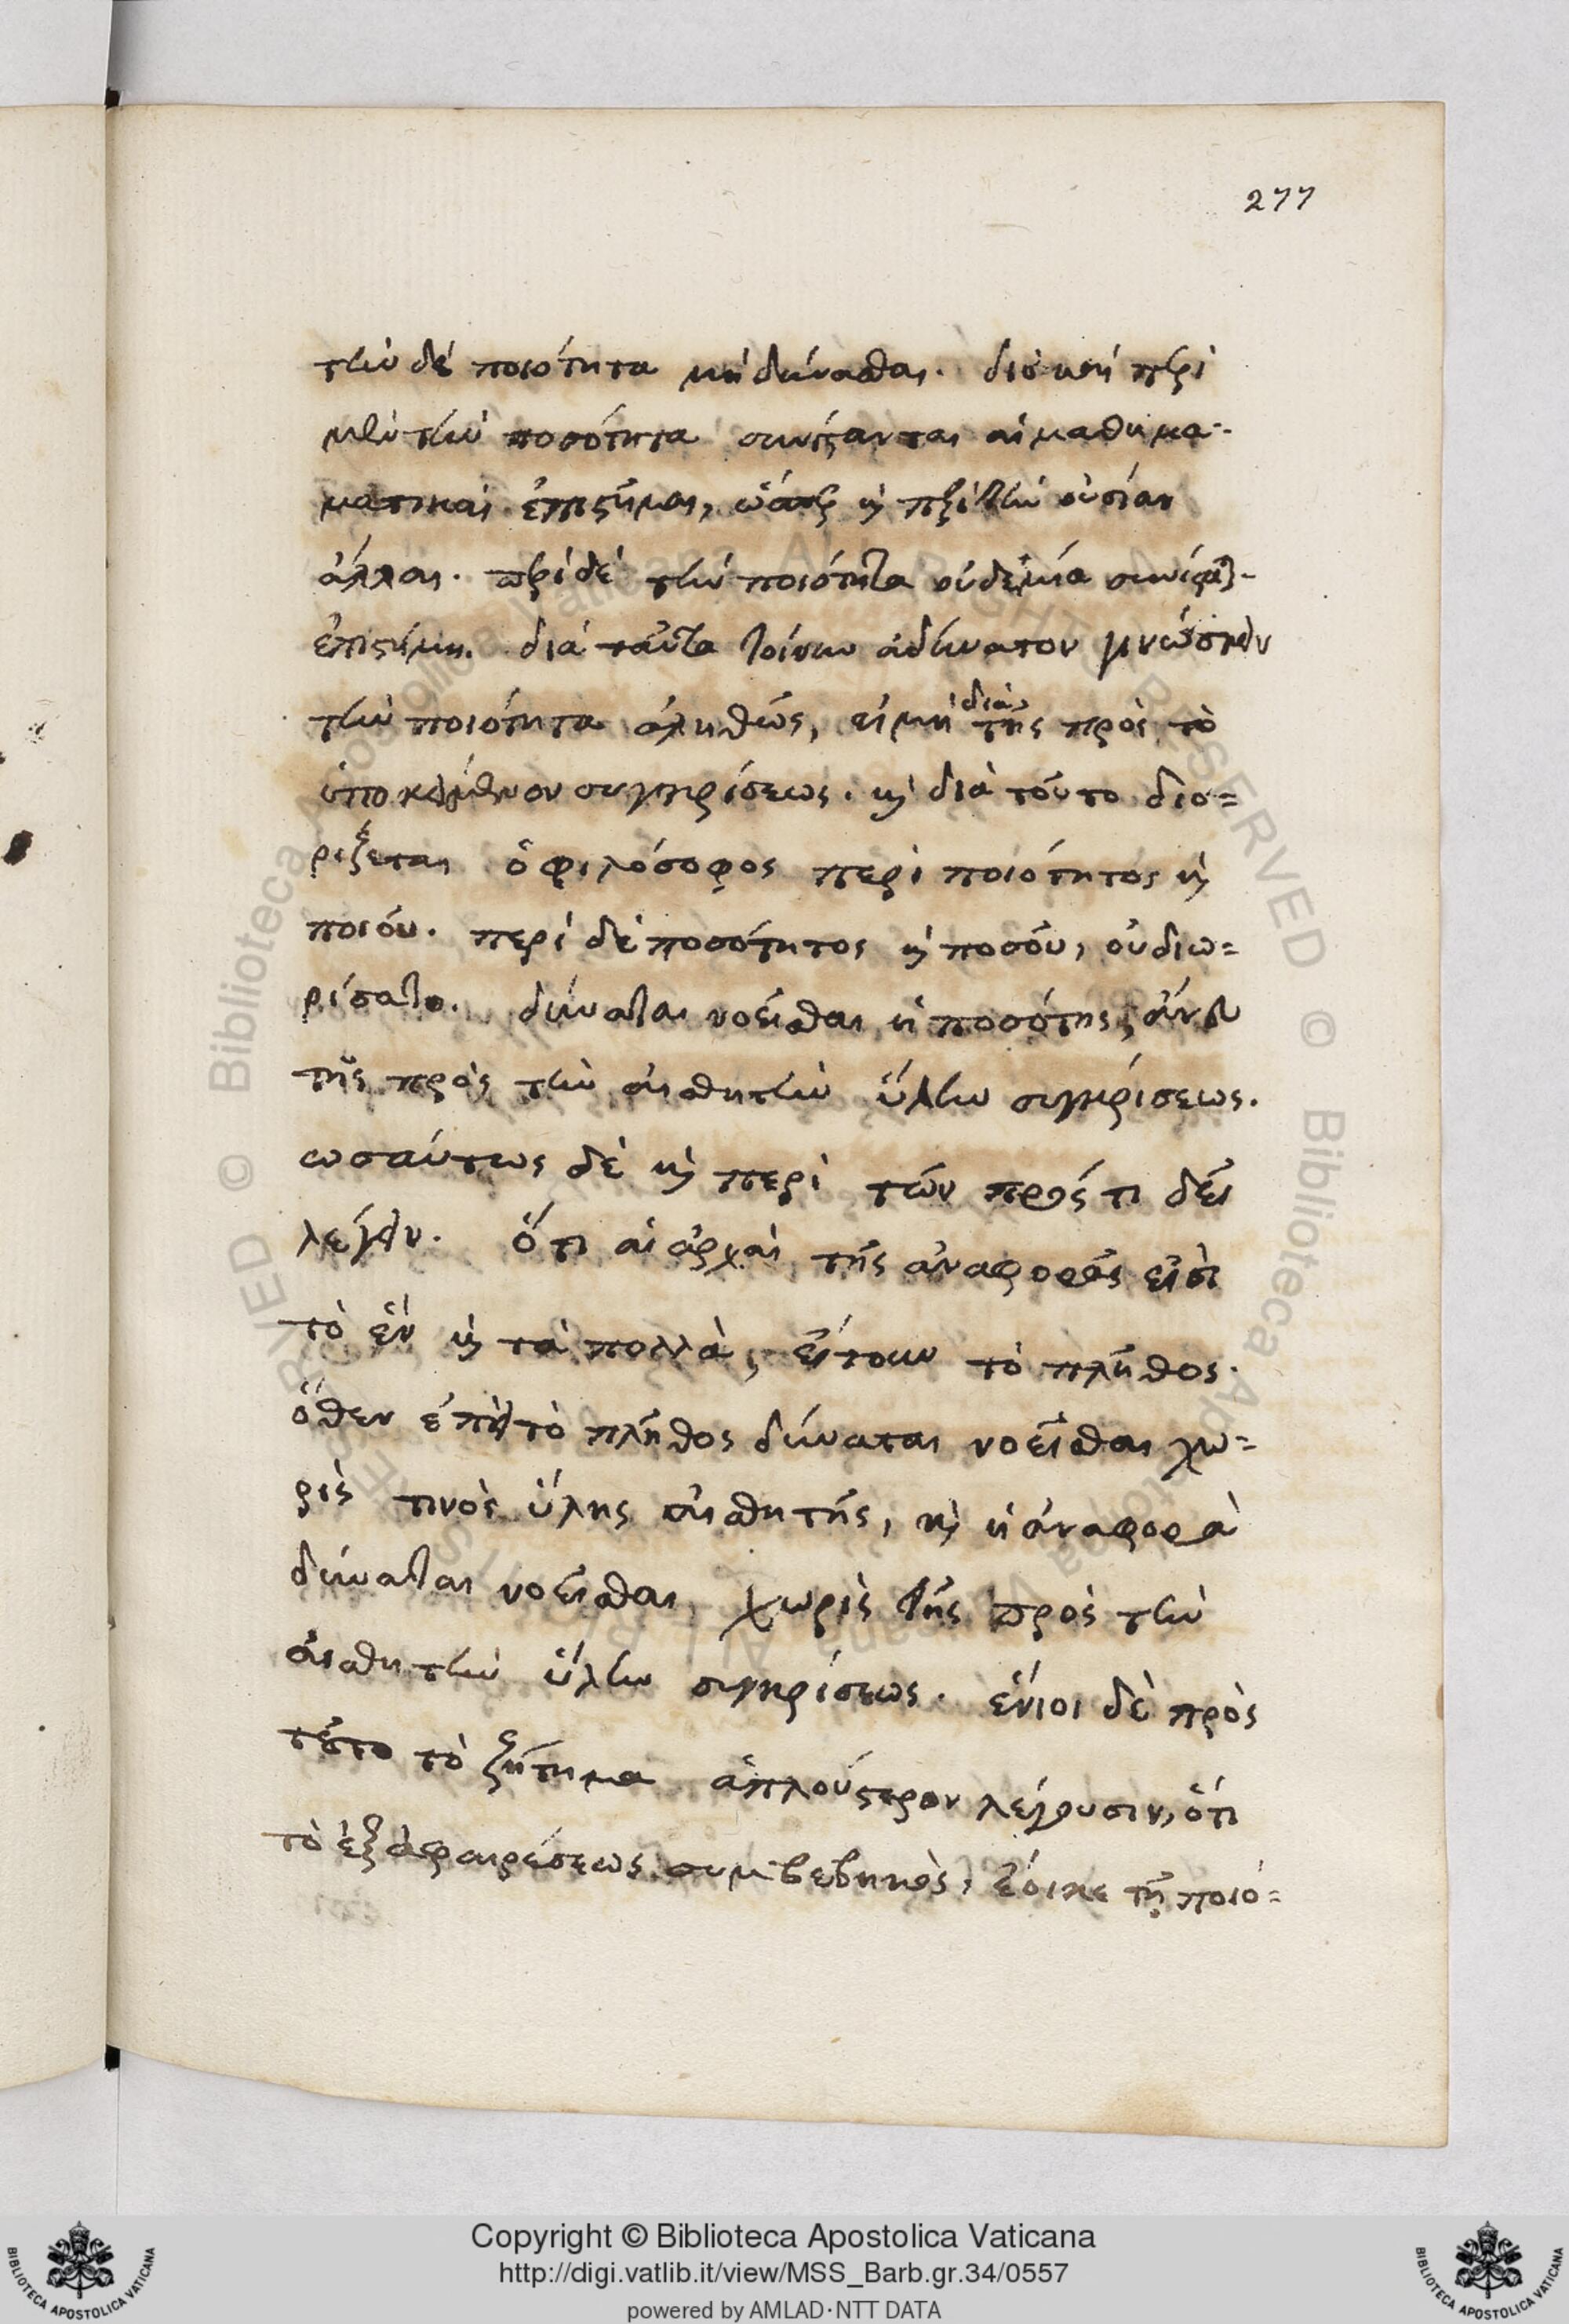 277
τὴν δὲ ποιότητα μὴ δύνασθαι. διὸ καὶ περὶ
μὲν τὴν ποσότητα συνίστανται αἱ μαθημα-
ματικαὶ ἐπιστῆμαι, ὥσπερ καὶ περὶ τὴν οὐσίαν
ἄλλαι. περὶ δὲ τὴν ποιότητα οὐδεμία συνίσταται
ἐπιστήμη. διὰ ταῦτα τοίνυν ἀδύνατον γνῶσιν
τὴν ποιότητα ἀληθῶς, εἰ μὴ διὰ τῆς πρὸς τὸ
ὑποκείμενον συγκρίσεως. καὶ διὰ τοῦτο διο=
ρίζεται ὁ φιλόσοφος περὶ ποιότητος καὶ
ποιοῦ. περὶ δὲ ποσότητος καὶ ποσοῦ, οὐ διω=
ρίσατο. δύναται νοεῖσθαι ἡ ποσότης, ἄνευ
τῆς πρὸς τὴν αἰσθητὴν ὕλην συγκρίσεως.
ωσαύτως δὲ καὶ περὶ τῶν πρός τι δεῖ
λέγειν. ὅτι αἱ ἀρχαὶ τῆς ἀναφορᾶς εἰσὶ
τὸ ἓν καὶ τὰ πολλὰ, εἴτουν τὸ πλῆθος.
ὅθεν ἐπεὶ τὸ πλῆθος δύναται νοεῖσθαι χω=
ρὶς τινὸς ὕλης αἰσθητῆς, καὶ ἡ ἀναφορὰ
δύναται νοεῖσθαι χωρὶς τῆς πρὸς τὴν
αἰσθητὴν ὕλην συγκρίσεως. ἔνιοι δὲ πρὸς
τοῦτο τὸ ζήτημα ἁπλούστερον λέγουσιν, ὅτι
τὸ ἐξ ἀφαιρέσεως συμβεβηκὸς, ἔοικε τῇ ποιό=
Copyright © Biblioteca Apostolica Vaticana
http://digi.vatlib.it/view/MSS_Barb.gr.34/0557
powered by AMLAD·NTT DATA